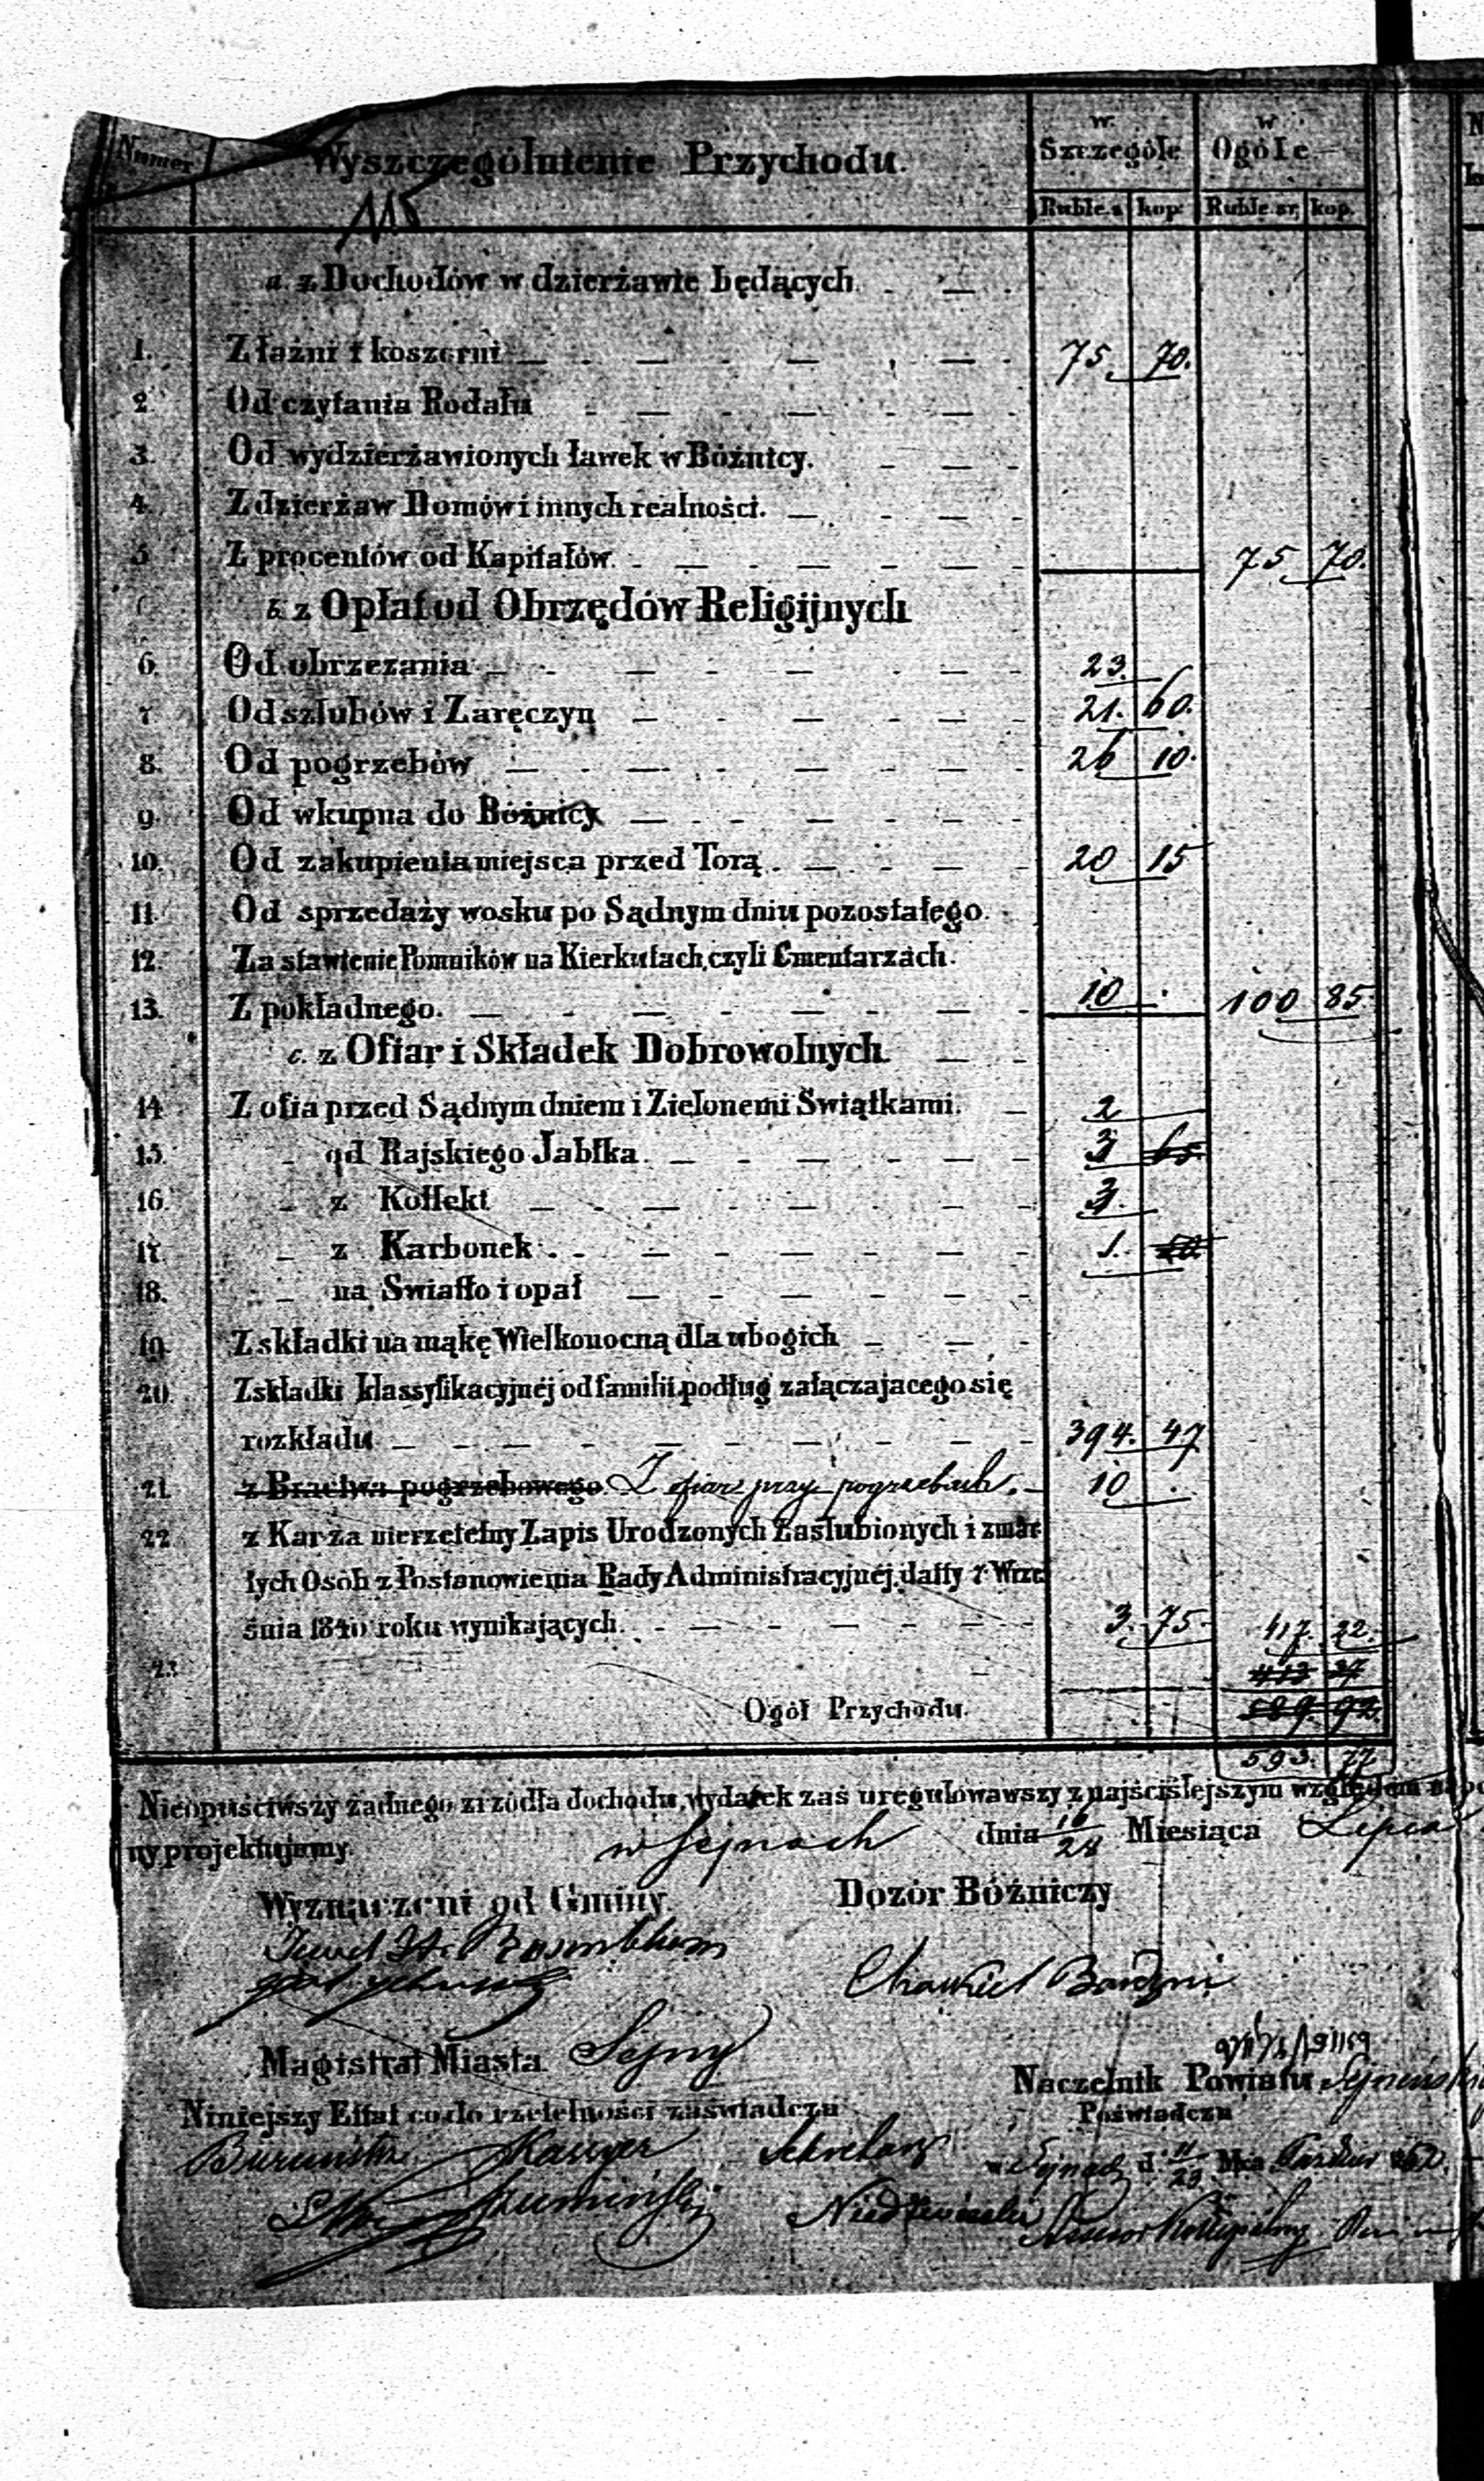 Numer
Wyszczególnienie Przychodu.
w Szczególe
w Ogóle
115
Ruble s. kop:
Ruble.sr. kop.
a. z Dochodów w dzierżawie będących.
1. Z łaźni i koszerni 75. 70.
2. Od czytania Rodału
3. Od wydzierżawionych ławek w Bóżnicy.
4. Z dzierżaw Domów i innych realności.
5 Z procentów od Kapitałów. 75 70.
b. z Opłat od Obrzędów Religijnych
6. Od obrzezania 23.
7. Od szlubów i Zaręczyn 21. 60.
8. Od pogrzebów 26 10.
9. Od wkupna do Bóżnicy
10. Od zakupienia miejsca przed Torą. 20 15
11. Od sprzedaży wosku po Sądnym dniu pozostałego.
12. Za stawienie Pomników na Kierkutach, czyli Cmentarzach.
13. Z pokładnego. 10 . 100 85
c. z Ofiar i Składek Dobrowolnych
14 Z ofia przed Sądnym dniem i Zielonemi Swiątkami. 2
15. od Rajskiego Jabłka. 3 65
16. z Kollekt 3.
17 z Karbonek. 1.
18. na Swiatło i opał
19. Z składki na mąkę Wielkonocną dla ubogich
20. Z składki klassyfikacyjnéj od familii podług załączajacego się
rozkładu 394. 47
21. z Bractwa pogrzebowego Z ofiar przy pogrzebach. 10 .
22 z Kar za nierzetelny Zapis Urodzonych Zaslubionych i zmar
łych Osób z Postanowienia Rady Administracyjnéj datty 7 Wrze
śnia 1840 roku wynikających. 3. 75. 417. 22.
23 413 37
Ogół Przychodu. 589. 92.
593. 77
Nieopuściwszy żadnego zrzódła dochodu, wydatek zaś uregulowawszy z najściślejszym względem na po
ny projektujemy. w Sejnach dnia 16/28 Miesiąca Lipca
Wyznaczeni od Gminy.
Dozór Bóżniczy
Magistrat Miasta Sejny
Naczelnik Powiatu
Niniejszy Etat co do rzetelności zaświadcza
Poświadcza
Burmistrz Sekretarz
d. 11/23 Mca
Assesor Kollegialny